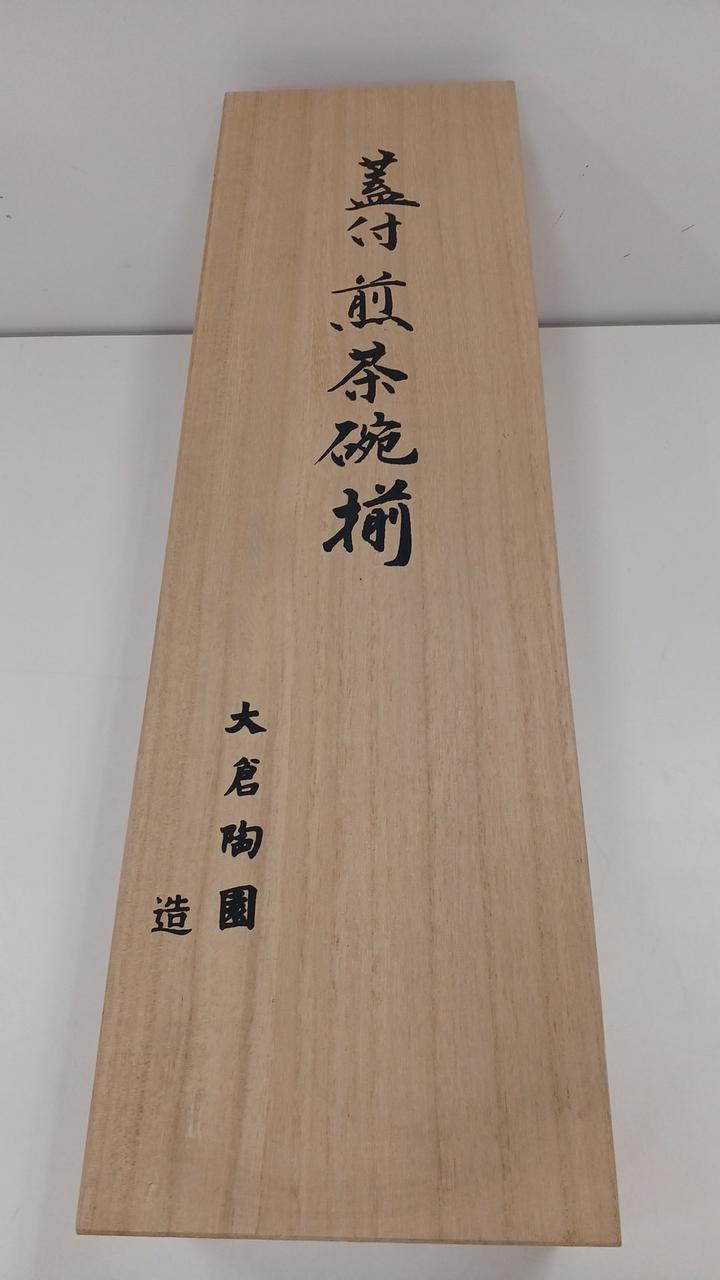 蓋付煎茶碗揃
大倉陶園
造